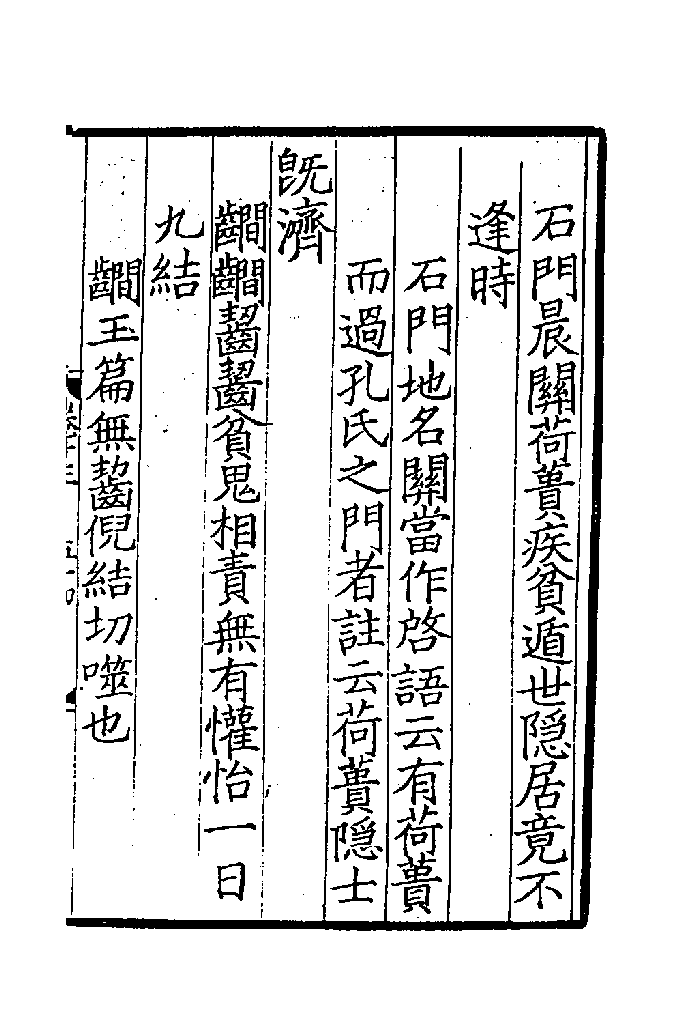 石門晨關荷蕢疾貧遁世隠居竟不
逢時
石門地名關當作啓語云有荷蕢
而過孔氏之門者註云荷蕢隠士
旣濟
䶢䶢齧齧貧鬼相責無有懽怡一日
九結
䶢玉篇無齧倪結切噬也